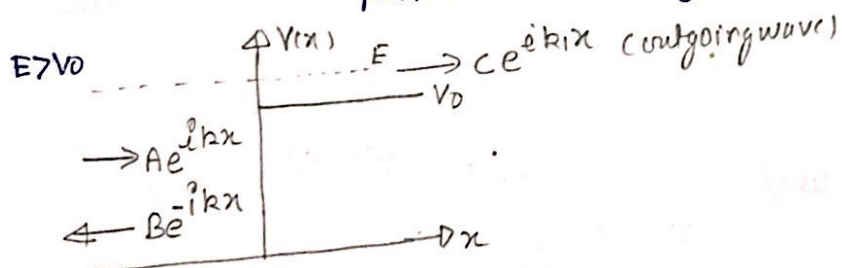 V(x)
E>V0
E → Ce^{ik₁x} (outgoing wave)
V0
→ Ae^{ikx}
← Be^{-ikx}
x